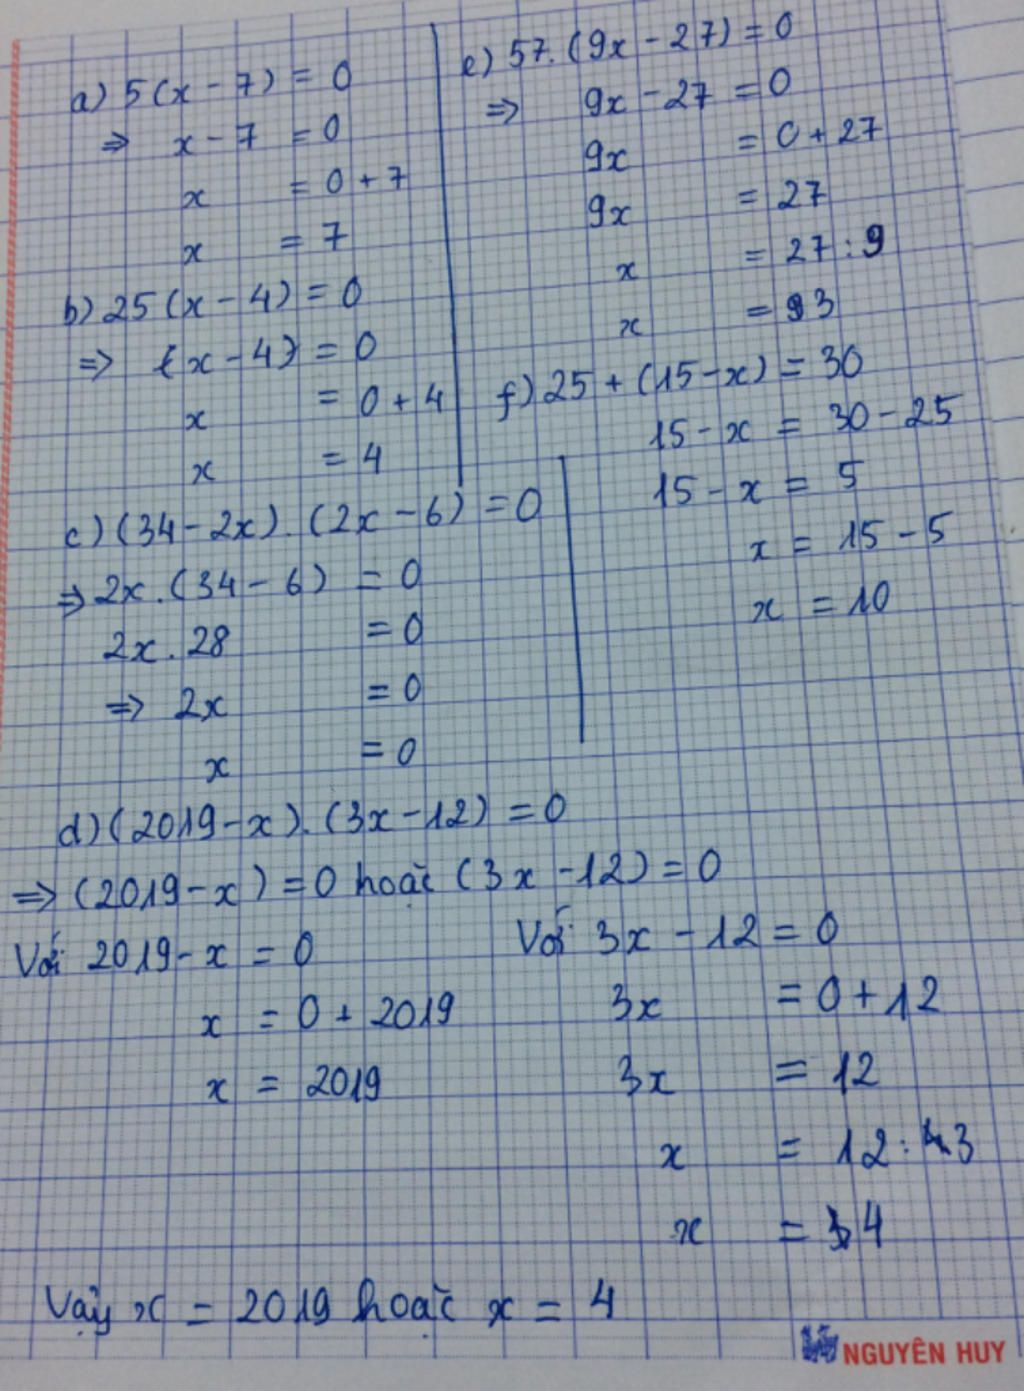 a) 5(x - 7) = 0
⇒ x - 7 = 0
x = 0 + 7
x = 7
b) 25(x - 4) = 0
⇒ (x - 4) = 0
x = 0 + 4
x = 4
c) (34 - 2x).(2x - 6) = 0
⇒ 2x.(34 - 6) = 0
2x.28 = 0
⇒ 2x = 0
x = 0
e) 57.(9x - 27) = 0
⇒ 9x - 27 = 0
9x = 0 + 27
9x = 27
x = 27 : 9
x = 3
f) 25 + (15 - x) = 30
15 - x = 30 - 25
15 - x = 5
x = 15 - 5
x = 10
d) (2019 - x).(3x - 12) = 0
⇒ (2019 - x) = 0 hoặc (3x - 12) = 0
Với 2019 - x = 0
x = 0 + 2019
x = 2019
Với 3x - 12 = 0
3x = 0 + 12
3x = 12
x = 12 : 3
x = 4
Vậy x = 2019 hoặc x = 4
NGUYÊN HUY